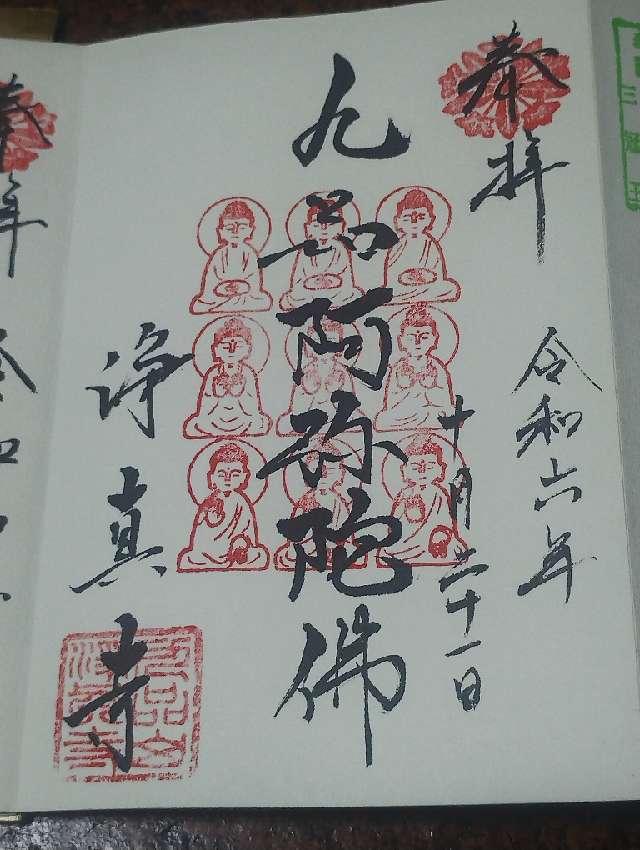 奉拝
令和六年
十月二十一日
九品阿弥陀佛
浄真寺